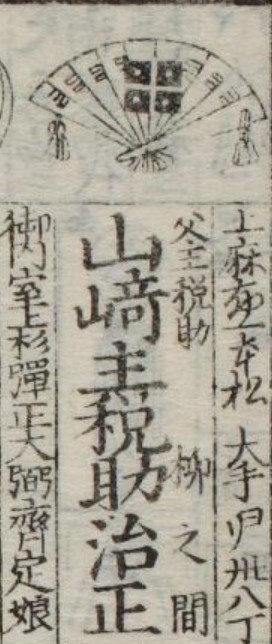 上麻布一本松 大手ヨリ卅八丁
父主税助 柳之間
山﨑主税助治正
御室上杉彈正大弼齊定娘